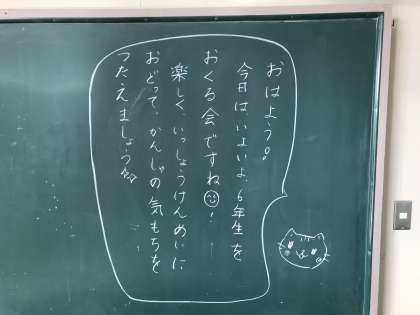 おはよう!
今日は、いよいよ、6年生を
おくる会ですね!
楽しく、いっしょうけんめいに
おどって、かんしゃの気もちを
つたえましょうね